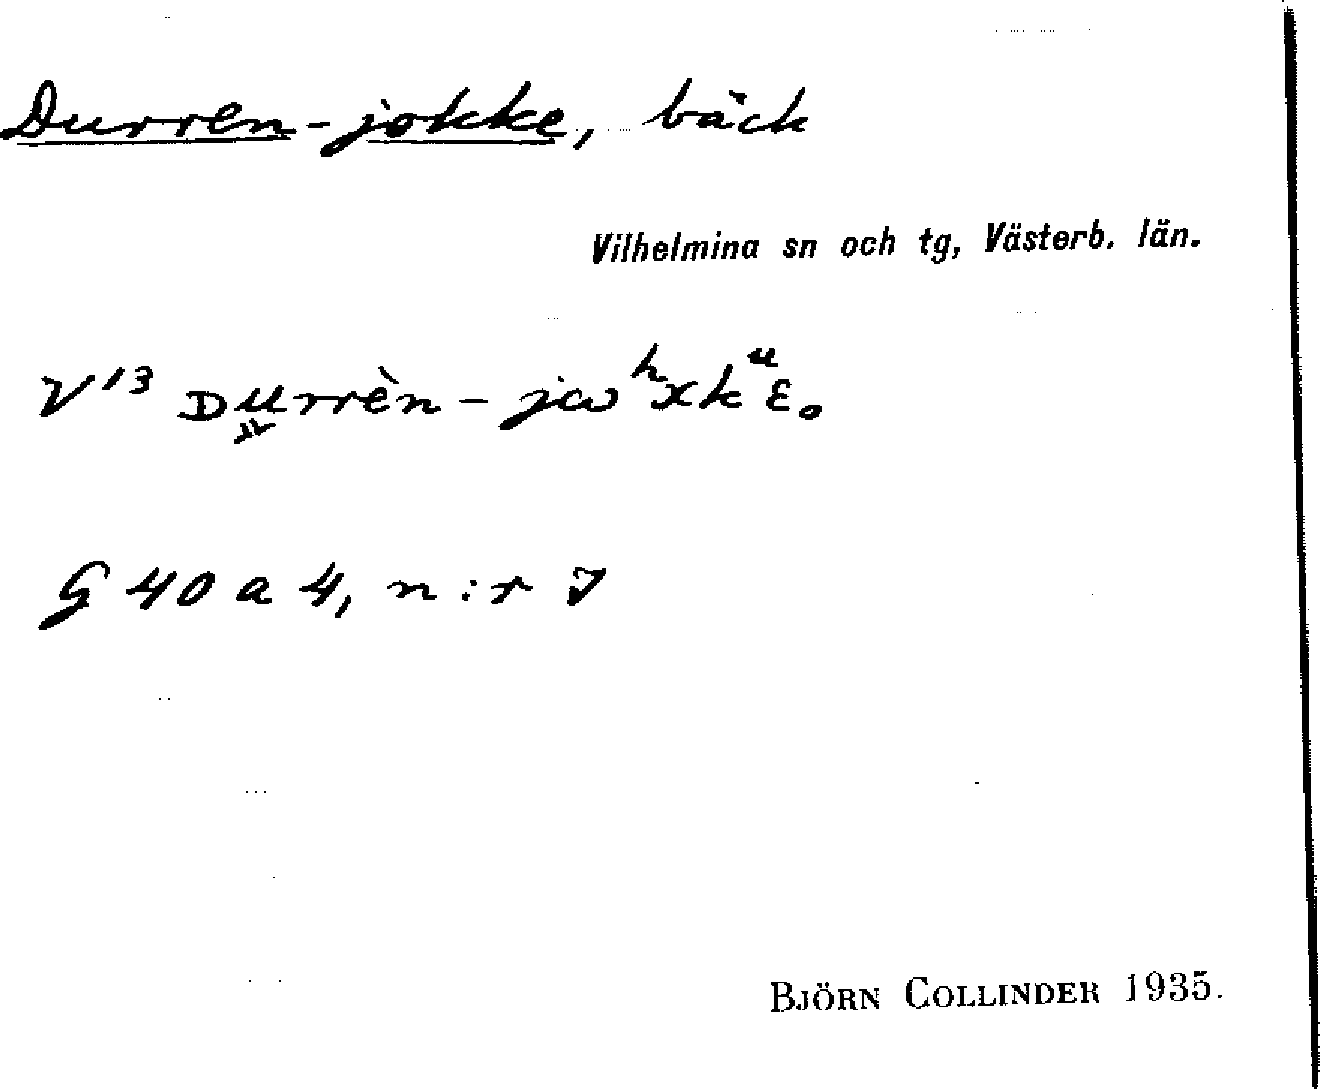 Durren-jokke, bäck
Vilhelmina sn och tg, Västerb. län.
V¹³ ᴅu̮rrèn-jωʰxkᵘε.
G 40 a 4, n:r 7
BJÖRN COLLINDER 1935.